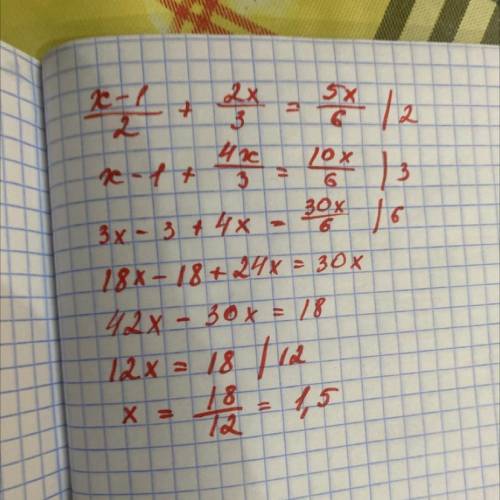 (x-1)/2 + 2x/3 = 5x/6 | 2
x-1 + 4x/3 = 10x/6 | 3
3x - 3 + 4x - 30x/6 | 6
18x - 18 + 24x = 30x
42x - 30x = 18
12x = 18 | 12
x = 18/12 = 1,5